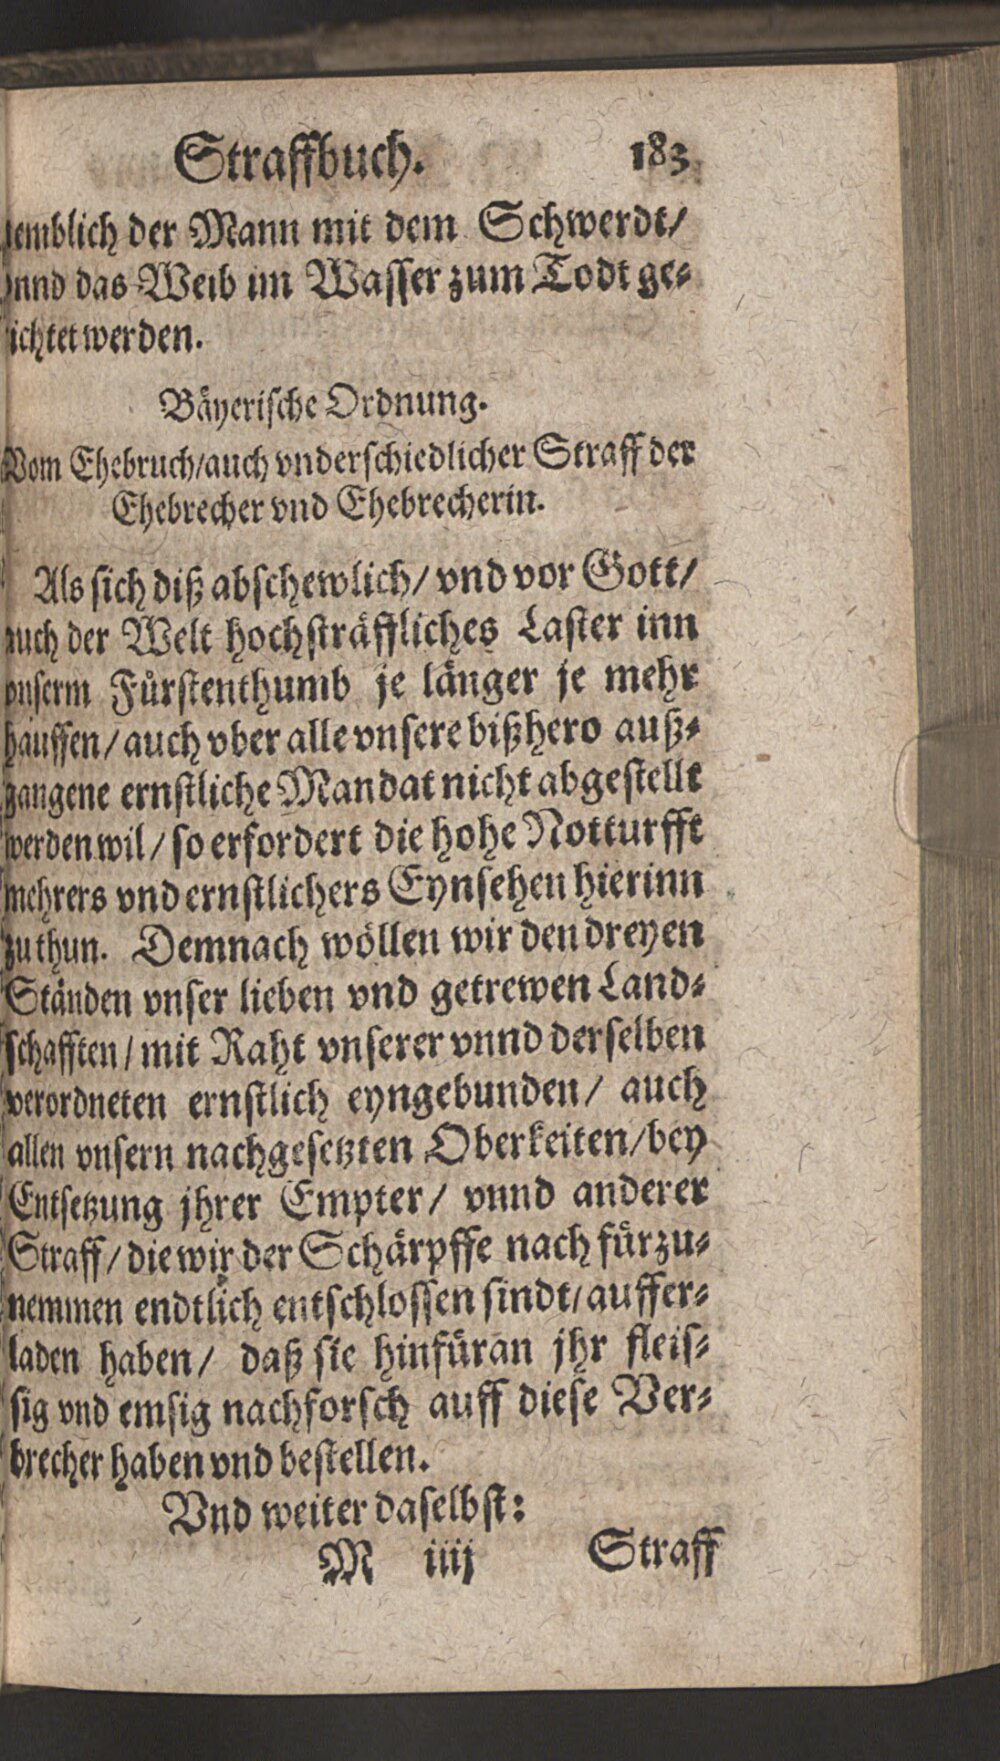 Straffbuch. 183
nemblich der Mann mit dem Schwerdt/
vnnd das Weib im Wasser zum Todt ge⸗
richtet werden.
Bäyerische Ordnung.
Vom Ehebruch/auch vnderschiedlicher Straff der
Ehebrecher vnd Ehebrecherin.
Als sich diß abschewlich/ vnd vor Gott/
auch der Welt hochsträffliches Laster inn
vnserm Fürstenthumb je länger je mehr
häuffen/ auch vber alle vnsere bißhero auß⸗
gangene ernstliche Mandat nicht abgestellt
werden wil/ so erfordert die hohe Notturfft
mehrers vnd ernstlichers Eynsehen hierinn
zu thun. Demnach wöllen wir den dreyen
Ständen vnser lieben vnd getrewen Land⸗
schafften/ mit Raht vnserer vnnd derselben
verordneten ernstlich eyngebunden/ auch
allen vnsern nachgesetzten Oberkeiten/bey
Entsetzung jhrer Empter/ vnnd anderer
Straff/ die wir der Schärpffe nach fürzu⸗
nemmen endtlich entschlossen sindt/ auffer⸗
laden haben/ daß sie hinfüran jhr fleis⸗
sig vnd emsig nachforsch auff diese Ver⸗
brecher haben vnd bestellen.
Vnd weiter daselbst:
M iiij Straff